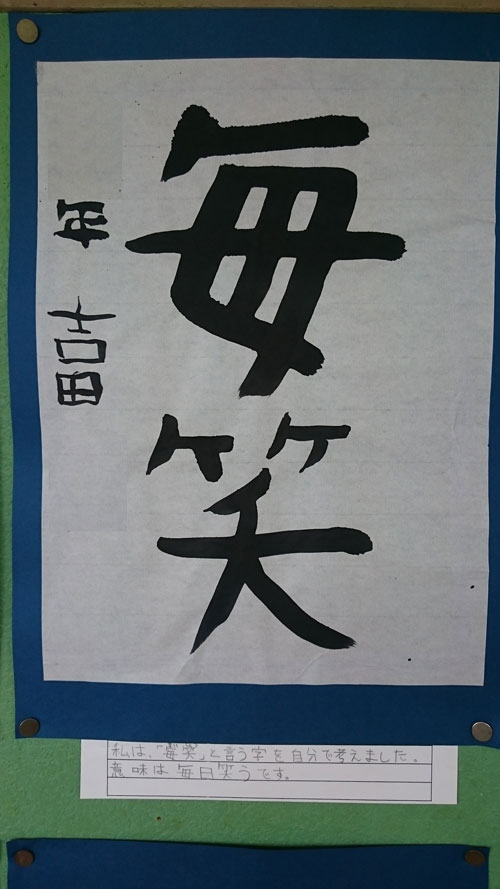 毎笑
私は、「毎笑」と言う字を自分で考えました。
意味は毎日笑うです。